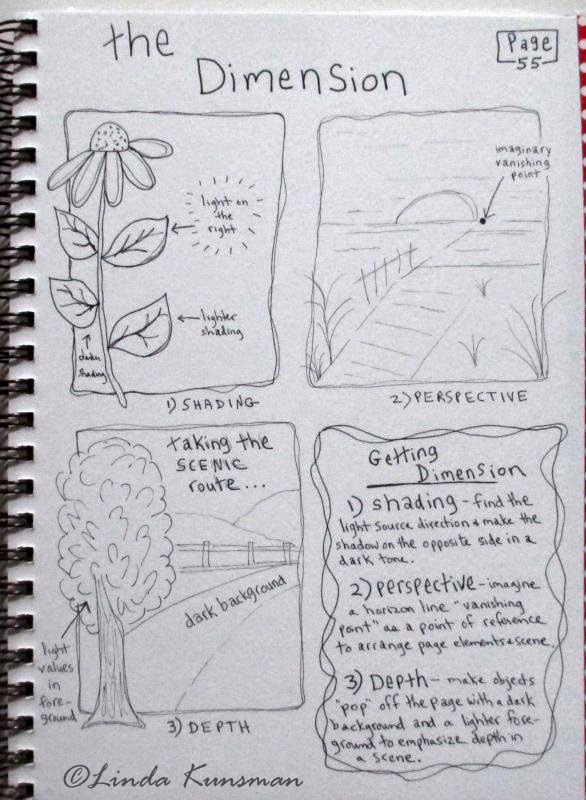 the
Dimension
Page
55
light on
the
right
lighter
shading
darker
shading
1) SHADING
imaginary
vanishing
point
2) PERSPECTIVE
taking the
SCENIC
route...
dark background
light
values
in
fore-
ground
3) DEPTH
Getting
Dimension
1) shading - find the
light source direction & make the
shadow on the opposite side in a
dark tone.
2) perspective - imagine
a horizon line "vanishing
point" as a point of reference
to arrange page elements & scene.
3) Depth - make objects
"pop" off the page with a dark
background and a lighter fore-
ground to emphasize depth in
a scene.
©Linda Kunsman